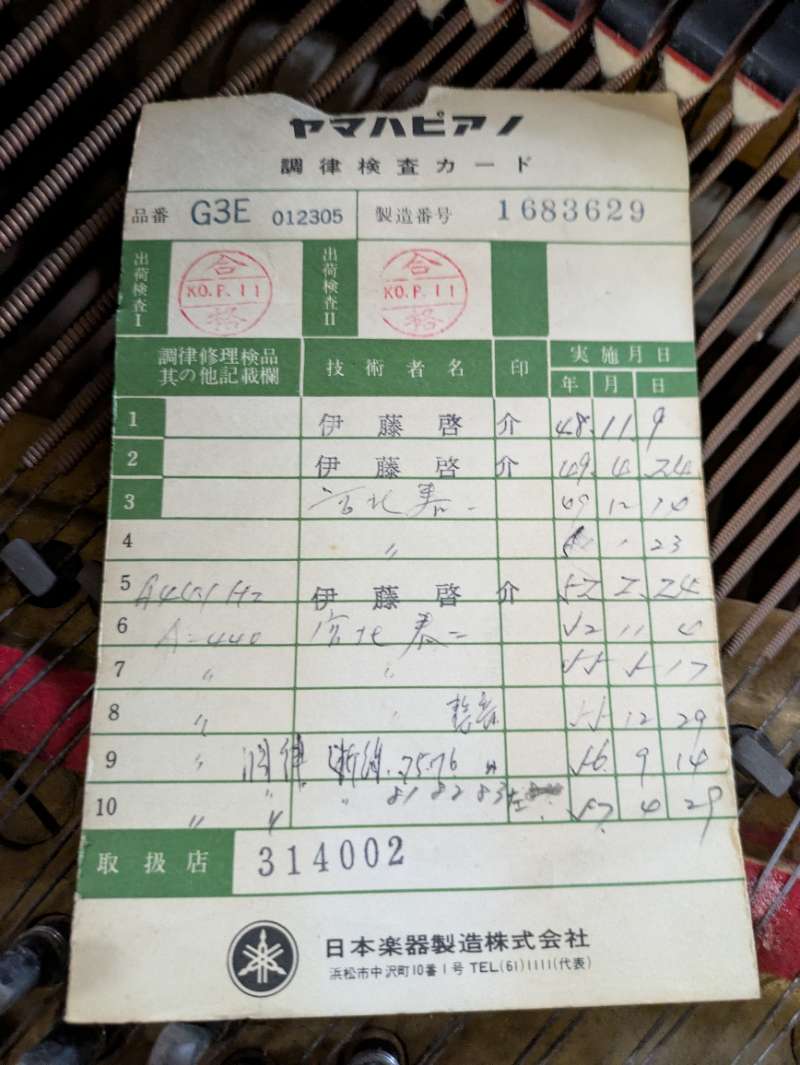 ヤマハピアノ
調律検査カード
品番 G3E 012305 製造番号 1683629
出荷検査I 合格 KO.P.11 出荷検査II 合格 KO.P.11
調律修理検品其の他記載欄 技術者名 印 実施月日
年 月 日
1 伊藤啓介 48. 11. 9
2 伊藤啓介 49. 4. 24
3 49 12
4 〃 23
5 伊藤啓介 52. 2. 24
6 A=440 52 11 4
7 〃 〃 55 5 17
8 〃 〃 整音 55 12 29
9 〃 調律 断線. 75.76 56. 9 14
10 〃 〃 〃 81 82 83 左 57. 4 29
取扱店 314002
日本楽器製造株式会社
浜松市中沢町10番1号 TEL(61)1111(代表)